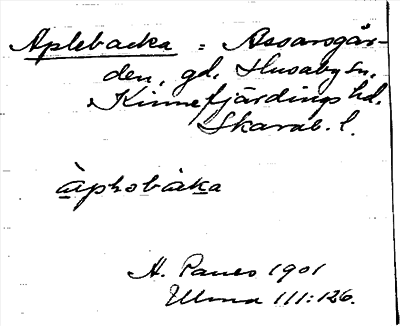 Aplebacka = Assarsgår-
den, gd, Husaby sn,
Kinnefjärdings hd.
Skarab. l.
àpləbàka
1901
III:126.